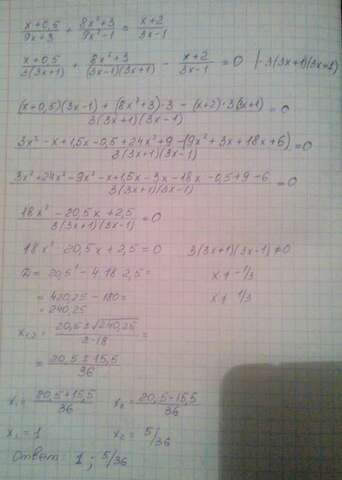 (x+0,5)/(9x+3) + (8x²+3)/(9x²-1) = (x+2)/(3x-1)
(x+0,5)/(3(3x+1)) + (8x²+3)/((3x-1)(3x+1)) - (x+2)/(3x-1) = 0 | ·3(3x+1)(3x-1)
((x+0,5)(3x-1) + (8x²+3)·3 - (x+2)·3(3x+1))/(3(3x+1)(3x-1)) = 0
(3x² - x + 1,5x - 0,5 + 24x² + 9 - (9x² + 3x + 18x + 6))/(3(3x+1)(3x-1)) = 0
(3x² + 24x² - 9x² - x + 1,5x - 3x - 18x - 0,5 + 9 - 6)/(3(3x+1)(3x-1)) = 0
(18x² - 20,5x + 2,5)/(3(3x+1)(3x-1)) = 0
18x² - 20,5x + 2,5 = 0 3(3x+1)(3x-1) ≠ 0
D = 20,5² - 4·18·2,5 = x ≠ -1/3
= 420,25 - 180 = x ≠ 1/3
= 240,25
x₁,₂ = (20,5 ± √240,25)/(2·18) =
= (20,5 ± 15,5)/36
x₁ = (20,5+15,5)/36 x₂ = (20,5-15,5)/36
x₁ = 1 x₂ = 5/36
Ответ: 1 ; 5/36